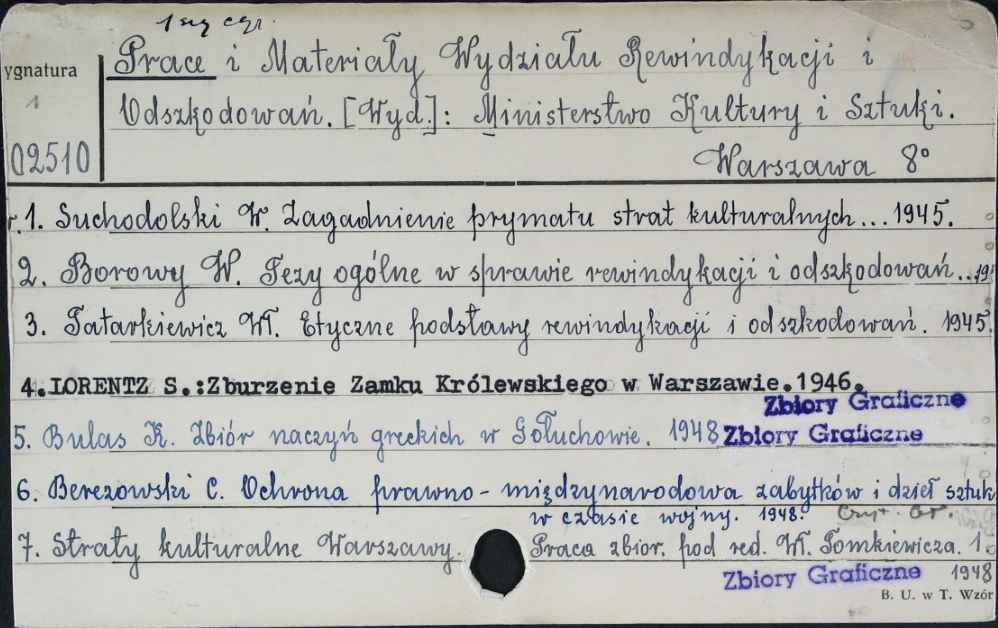 1 egz
ygnatura
1
02510
Prace i Materiały Wydziału Rewindykacji i
Odszkodowań. [Wyd.]: Ministerstwo Kultury i Sztuki.
Warszawa 8°
r. 1. Suchodolski W. Zagadnienie prymatu strat kulturalnych... 1945.
2. Borowy W. Tezy ogólne w sprawie rewindykacji i odszkodowań...19
3. Tatarkiewicz Wł. Etyczne podstawy rewindykacji i odszkodowań. 1945.
4.LORENTZ S.:Zburzenie Zamku Królewskiego w Warszawie.1946.
Zbiory Graficzne
5. Bulas K. Zbiór naczyń greckich w Gołuchowie. 1948 Zbiory Graficzne
6. Berezowski C. Ochrona prawno-międzynarodowa zabytków i dzieł sztuk
w czasie wojny. 1948.
7. Straty kulturalne Warszawy. Praca zbior. pod red. Wł. Tomkiewicza. 1.
Zbiory Graficzne 1948
B. U. w T. Wzór